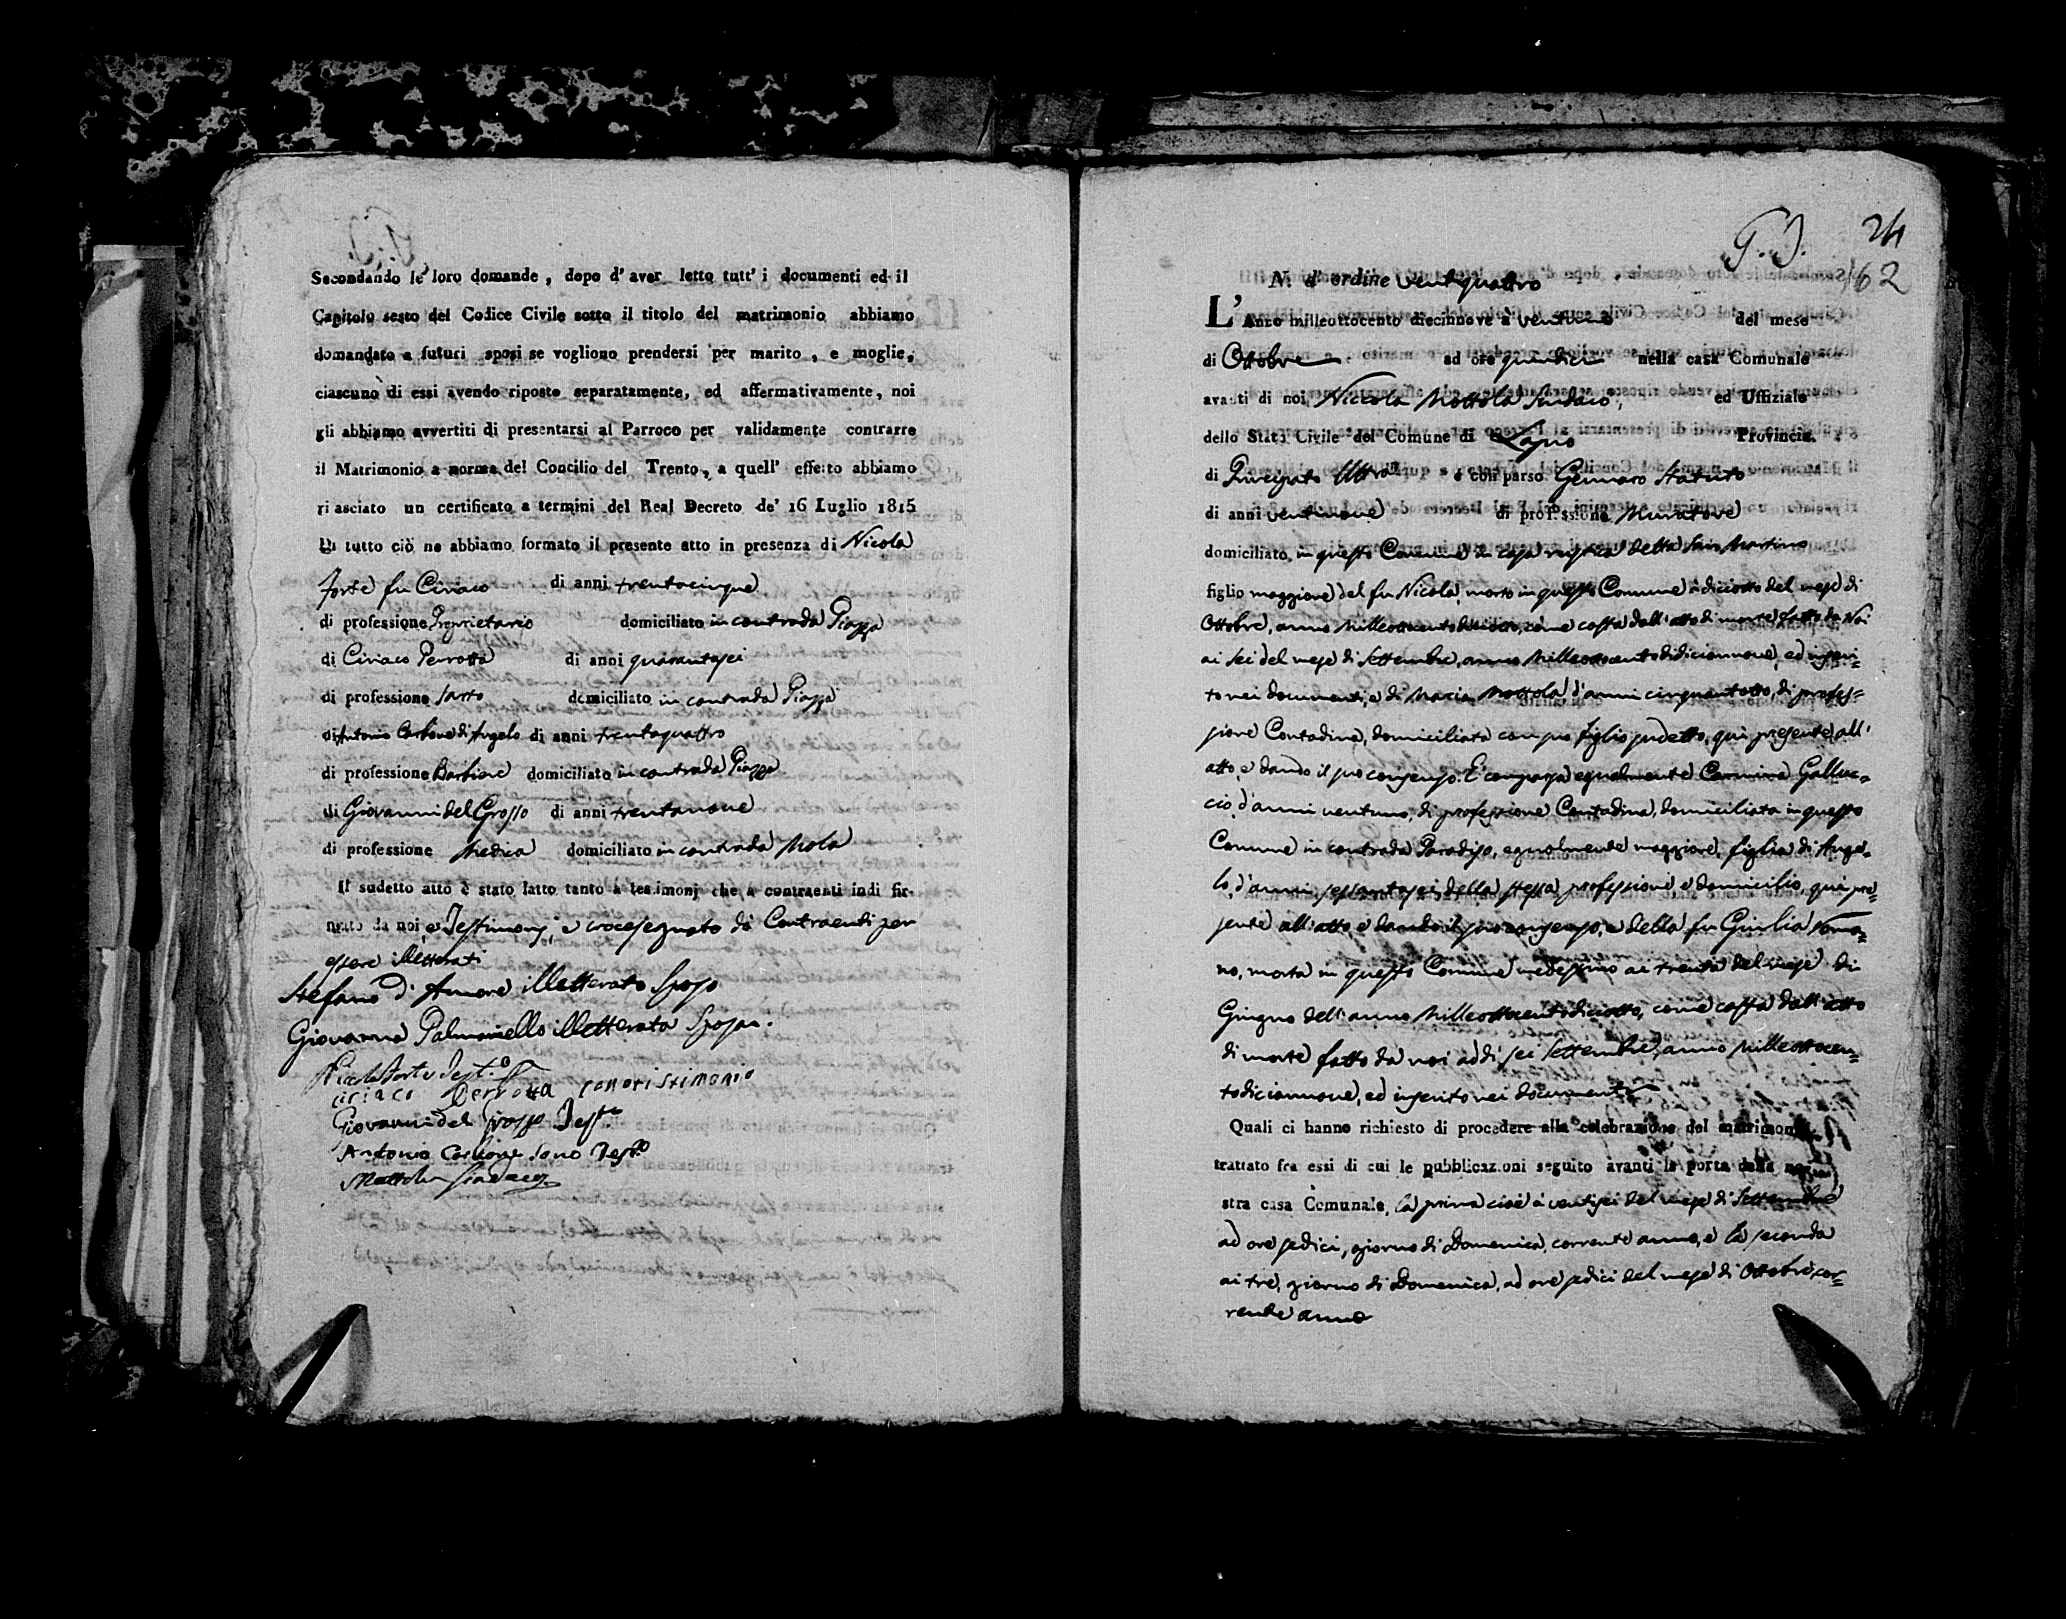 Secondando le loro domande, dopo d' aver letto tutt' i documenti ed il
Capitolo sesto del Codice Civile sotto il titolo del matrimonio abbiamo
domandato a futuri sposi se vogliono prendersi per marito, e moglie,
ciascuno di essi avendo riposto separatamente, ed affermativamente, noi
gli abbiamo avvertiti di presentarsi al Parroco per validamente contrarre
il Matrimonio a norma del Concilio del Trento, a quell' effetto abbiamo
ri asciato un certificato a termini del Real Decreto de' 16 Luglio 1815
Di tutto ciò ne abbiamo formato il presente atto in presenza di Nicola
Forte fu Ciriaco di anni trentacinque
di professione Proprietario domiciliato in contrada Piazza
di Ciriaco Perrotta di anni quarantasei
di professione Sarto domiciliato in contrada Piazza
di Antonio Carbone di Angelo di anni trentaquattro
di professione Barbiere domiciliato in contrada Piazza
di Giovanni del Grosso di anni trentanove
di professione Medico domiciliato in contrada Mola
Il sudetto atto è stato latto tanto a testimonj che a contraenti indi fir-
mato da noi, e Testimonj, e crocesegnato da Contraenti per
essere illetterati
Stefano d' Amore illetterato Sposo
Giovanna Palmariello illetterata Sposa.
Nicola Forte Test.o
ciriaco Perrotta sono ristimonio
Giovanni del Grosso Test.e
Antonio Carbone sono Test.o
Mottola Sindaco
T. J. 24
162
N. d' ordine ventiquattro
L' Anno milleottocento diecinnove a' ventuno del mese
di Ottobre ad ore quindici nella casa Comunale
avanti di noi Niccola Mottola Sindaco, ed Uffiziale
dello Stato Civile del Comune di Lapio Provincia
di Principato Ultra è comparso Gennaro Statuto
di anni ventinove di professione Muratore
domiciliato in questo Comune in casa rustica detta San Martino
figlio maggiore del fu Nicola, morto in questo Comune a diciotto del mese di
Ottobre, anno Milleottocentodiciotto, come costa dall' atto di morte fatto da Noi
ai sei del mese di Settembre, anno Milleottocentodidicionnove, ed inseri-
to nei documenti, e di Maria Mottola d'anni cinquantotto, di profes-
sione Contadina, domiciliata con suo figlio sudetto, qui presente all'
atto, e dando il suo consenso. E' comparsa egualmente Carmina Galluc-
cio, d'anni ventuno, di professione Contadina, domiciliata in questo
Comune in contrada Paradiso, egualmente maggiore, figlia di Ange-
lo, d'anni sessantasei della stessa professione, e domicilio, qui pre-
sente all' atto e dando il suo consenso, e della fu Giulia Roma-
no, morta in questo Comune medessimo ai trenta del mese di
Giugno dell' anno Milleottocentodiciotto, come costa dall' atto
di morte fatto da noi addi sei Settembre, anno Milleottocen-
todicionnove, ed inserito nei documenti
Quali ci hanno richiesto di procedere alla celebrazione del matrimonio
trattato fra essi di cui le pubblicazioni seguito avanti la porta della no-
stra casa Comunale, la prima cioè a ventisei del mese di Settembre
ad ore sedici, giorno di Domenica, corrente anno, e la seconda
ai tre, giorno di Domenica, ad ore sedici del mese di Ottobre cor-
rente anno